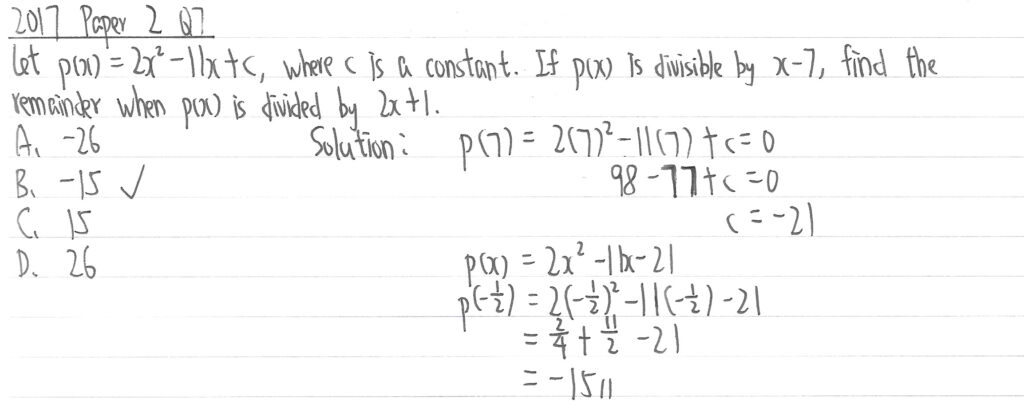 2017 Paper 2 Q7
Let p(x) = 2x² -11x+c, where c is a constant. If p(x) is divisible by x-7, find the
remainder when p(x) is divided by 2x+1.
A. -26
B. -15 ✓
C. 15
D. 26
Solution: p(7) = 2(7)² -11(7) + c = 0
98 -77 + c = 0
c = -21
p(x) = 2x² -11x -21
p(-1/2) = 2(-1/2)² -11(-1/2) -21
= 2/4 + 11/2 -21
= -15//